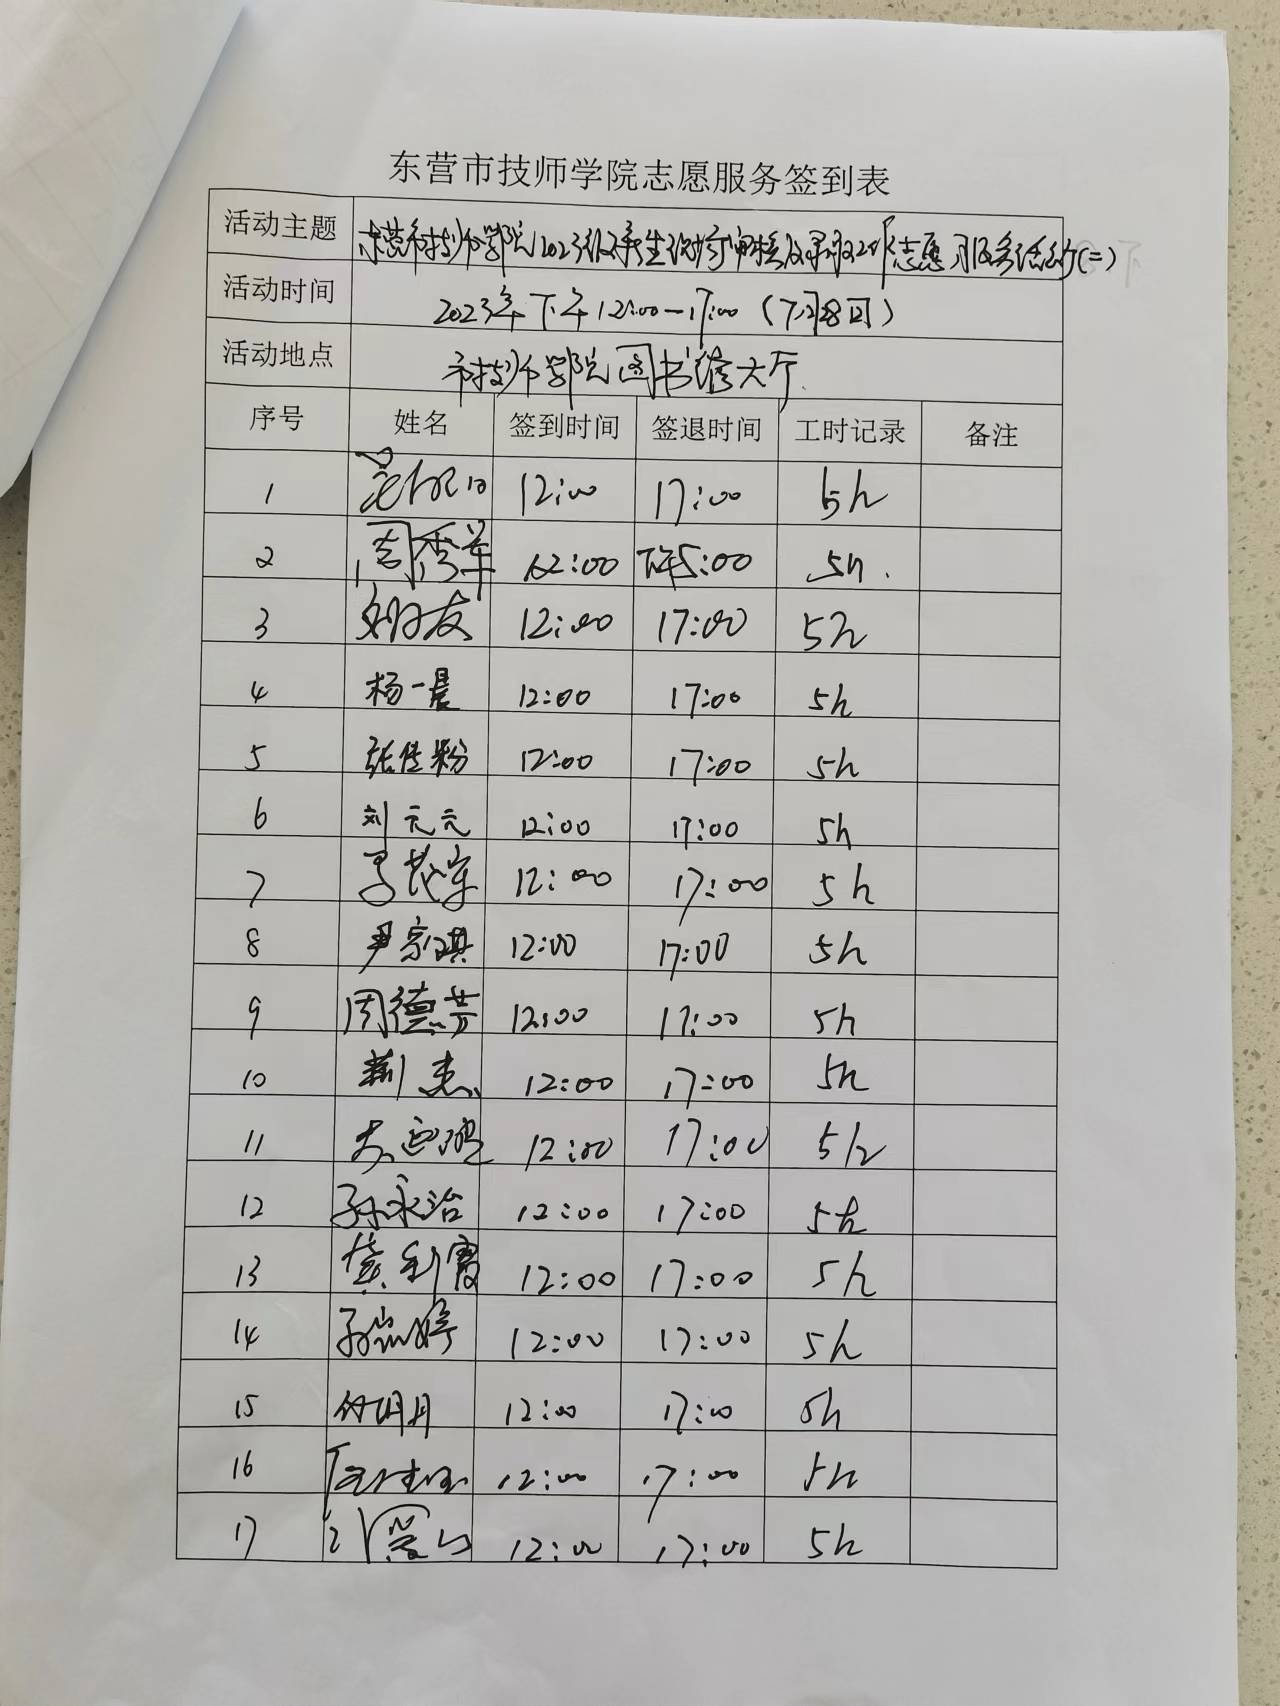 东营市技师学院志愿服务签到表
活动主题 东营市技师学院2023级新生现场审核及录取工作志愿服务活动(二)
活动时间 2023年下午12:00—17:00（7月28日）
活动地点 市技师学院图书馆大厅
序号 姓名 签到时间 签退时间 工时记录 备注
1 12:00 17:00 5h
2 周秀军 12:00 下午5:00 5h.
3 12:00 17:00 5h
4 杨一晨 12:00 17:00 5h
5 张佳粉 12:00 17:00 5h
6 刘元元 12:00 17:00 5h
7 12:00 17:00 5h
8 尹宗琪 12:00 17:00 5h
9 周德芳 12:00 17:00 5h
10 荆杰 12:00 17:00 5h
11 12:00 17:00 5h
12 孙永治 12:00 17:00 5h
13 黄利霞 12:00 17:00 5h
14 孙岚婷 12:00 17:00 5h
15 付明月 12:00 17:00 5h
16 12:00 17:00 5h
17 12:00 17:00 5h